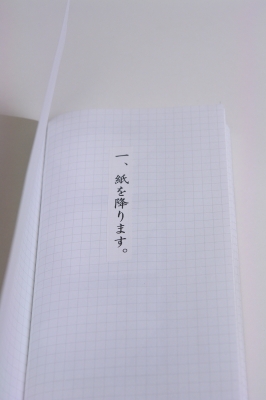 一、紙を降ります。